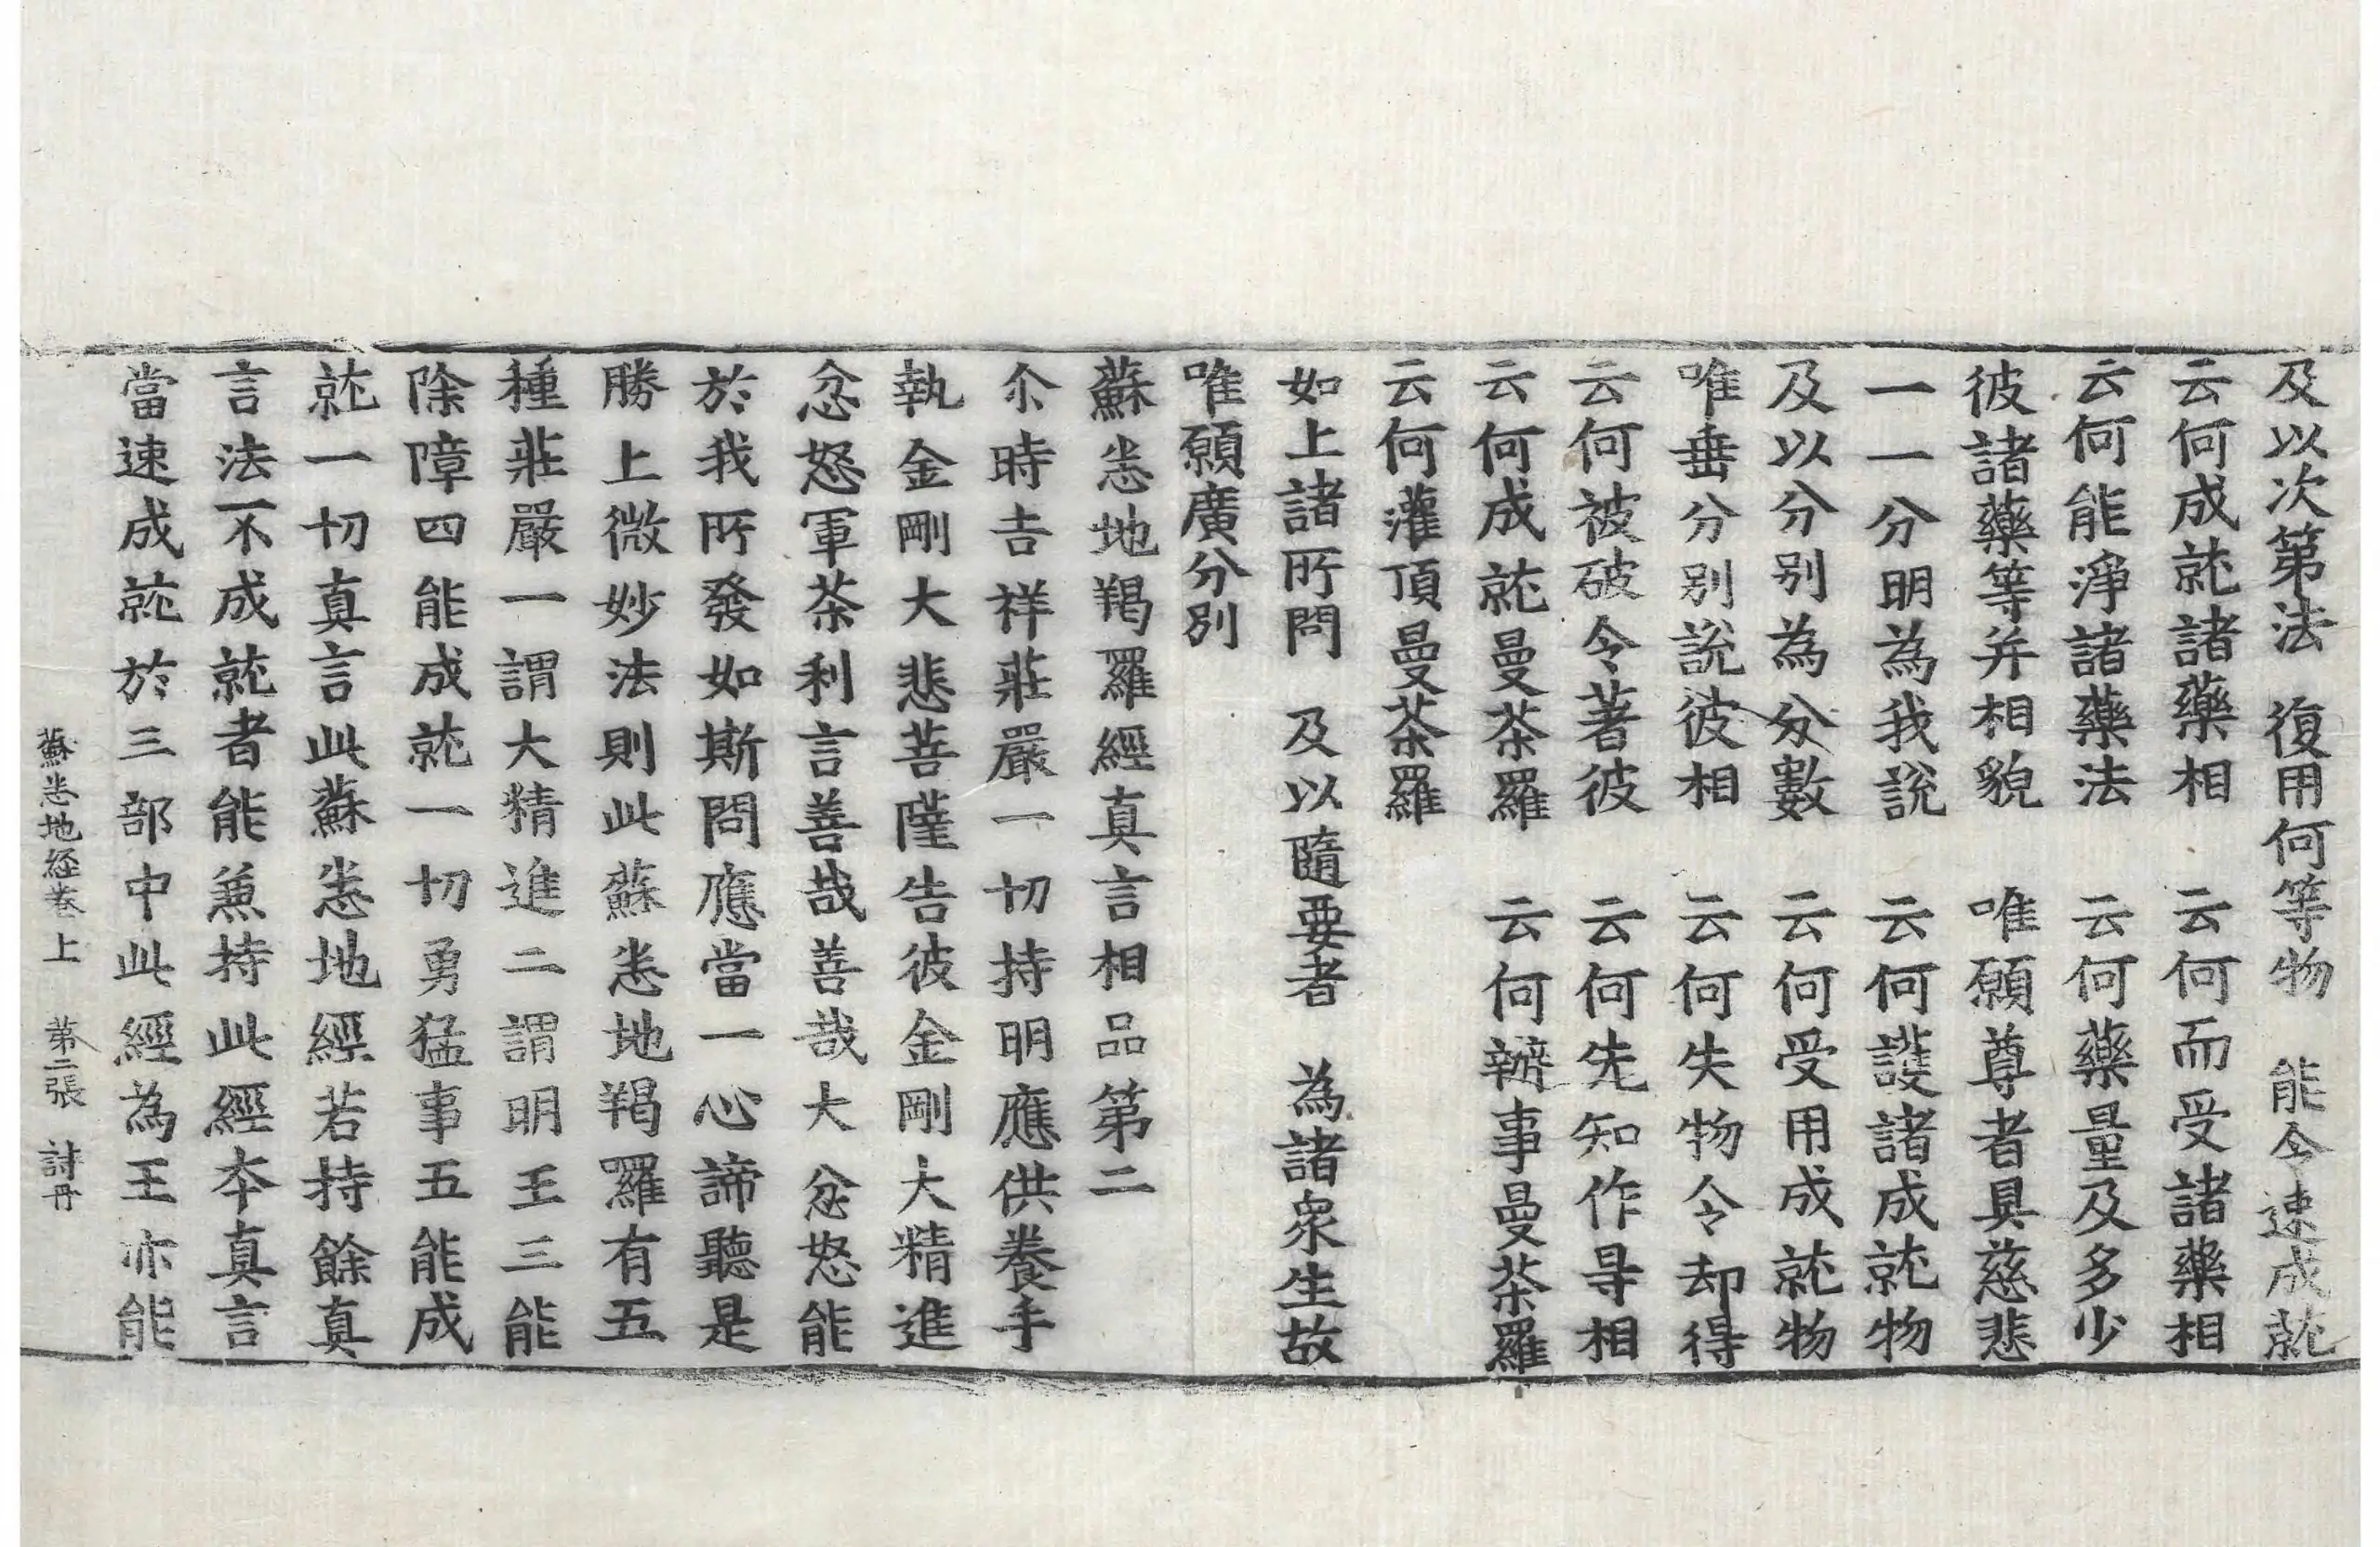 及以次第法　復用何等物　能令速成就
云何成就諸藥相　云何而受諸藥相
云何能淨諸藥法　云何藥量及多少
彼諸藥等并相貌　唯願尊者具慈悲
一一分明為我說　云何護諸成就物
及以分別為分數　云何受用成就物
唯垂分別說彼相　云何失物令却得
云何被破令著彼　云何先知作㝵相
云何成就曼茶羅　云何辦事曼茶羅
云何灌頂曼茶羅
如上諸所問　及以隨要者　為諸衆生故
唯願廣分別
蘇悉地羯羅經真言相品第二
尒時吉祥莊嚴一切持明應供養手
執金剛大悲菩薩告彼金剛大精進
忿怒軍茶利言善哉善哉大忿怒能
於我所發如斯問應當一心諦聽是
勝上微妙法則此蘇悉地羯羅有五
種莊嚴一謂大精進二謂明王三能
除障四能成就一切勇猛事五能成
就一切真言此蘇悉地經若持餘真
言法不成就者能兼持此經夲真言
當速成就於三部中此經為王亦能
蘇悉地経卷上　第二張　討丹